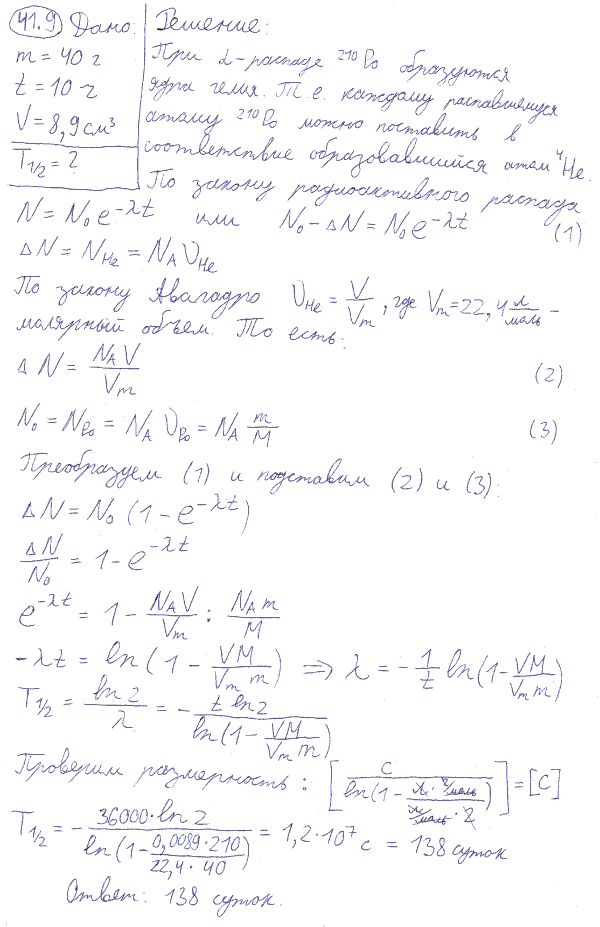 41.9 Дано: Решение:
m = 40 г
t = 10 ч
V = 8,9 см³
T₁/₂ = ?
При α-распаде ²¹⁰Po образуются
ядра гелия. Т.е. каждому распавшемуся
атому ²¹⁰Po можно поставить в
соответствие образовавшийся атом ⁴He.
По закону радиоактивного распада
N = N₀e^(-λt) или N₀ - ΔN = N₀e^(-λt) (1)
ΔN = N_He = N_A υ_He
По закону Авагадро υ_He = V/V_m, где V_m = 22,4 л/маль –
малярный объем. То есть:
ΔN = N_A V/V_m (2)
N₀ = N_Po = N_A υ_Po = N_A m/M (3)
Преобразуем (1) и подставим (2) и (3):
ΔN = N₀ (1 - e^(-λt))
ΔN/N₀ = 1 - e^(-λt)
e^(-λt) = 1 - N_A V/V_m : N_A m/M
-λt = ln(1 - VM/(V_m m)) ⇒ λ = -1/t ln(1 - VM/(V_m m))
T₁/₂ = ln 2/λ = - t ln 2/ln(1 - VM/(V_m m))
Проверим размерность: [с/ln(1 - (л · г/маль)/(л/маль · г))] = [с]
T₁/₂ = - 36000 · ln 2/ln(1 - (0,0089 · 210)/(22,4 · 40)) = 1,2 · 10⁷ с = 138 суток
Ответ: 138 суток.